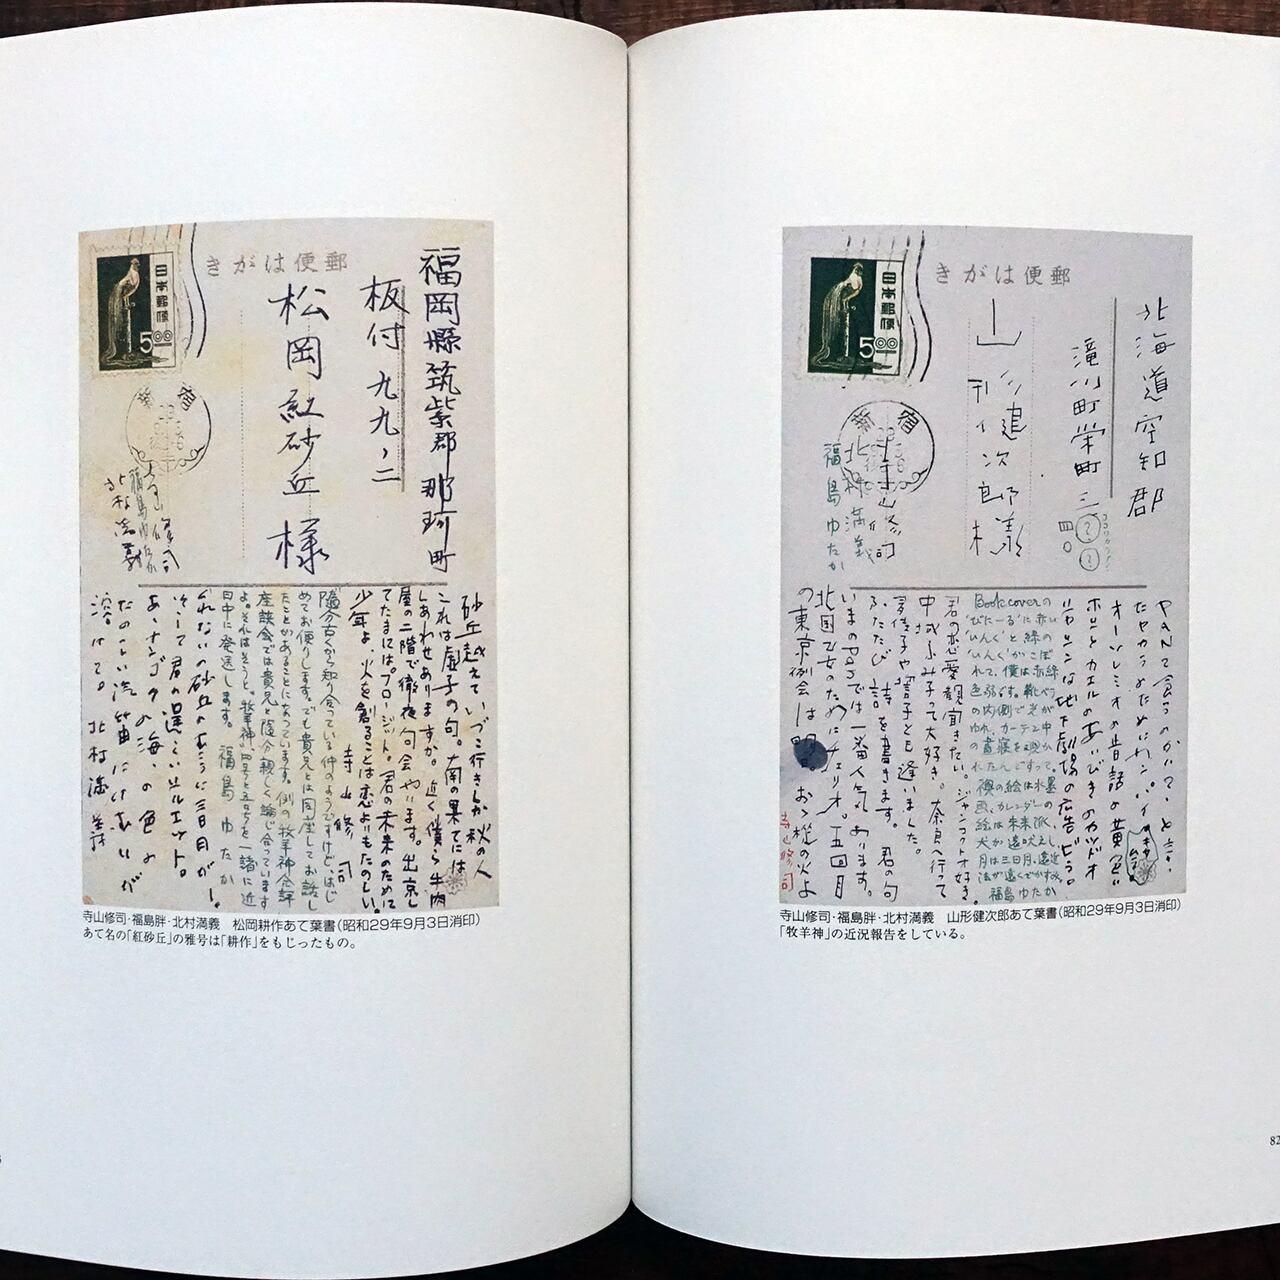 郵便はがき
北海道空知郡
滝川町栄町三
四〇
山形健次郎様
日本郵便
5.00
新宿
寺山修司
北村満義
福島ゆたか
PANで会うのがいて、と言
オーレミオの昔話の黄色い
ホロとカエルのあいびきのカツドオ
シャロンは地下劇場の広告ビラ。
Book coverの
"びにーる"に赤い
"いんく"と緑の
"いんく"がこぼ
れて、僕は赤緑
色弱です。靴べら
の内側で光が
ゆれ、カーテン中
の昼寝を覗か
れたんですって。
襖の絵は水墨
画、カレンダーの
絵は未来派、
犬が遠吠えし、
月は三日月、遠近
法が遠くでかすみ。
福島ゆたか
君の恋愛観宜きたい。ジャンコクトオ好き。
中城ふみ子って大好き。奈良へ行って
ふたたび詩を書きます。君の句
いまのPANでは一番人気あります。
北国乙女のためにチェリオ。五回目
の東京例会は明日。おゝ桜の火よ
寺山修司
寺山修司・福島胖・北村満義　山形健次郎あて葉書(昭和29年9月3日消印)
「牧羊神」の近況報告をしている。
82
郵便はがき
福岡縣筑紫郡那珂町
板付九九ノ二
松岡紅砂丘様
日本郵便
5.00
新宿
寺山修司
福島ゆたか
北村満義
砂丘越えていづこ行きしか秋の人
これは虚子の句。南の果てには
しあわせありますか。近く僕ら牛肉
屋の二階で徹夜句会やります。出京し
てたまにはプロージット。君の未来のために
少年よ、火を創ることは恋よりもたのしい。
寺山修司
随分古くから知り合っている仲のようですけど、はじ
めてお便りします。でも貴兄とは同座してお話し
たことがあることになっています。例の牧羊神合評
座談会では貴兄と随分親しく論じ合っています
よ。それはそうと、牧羊神、四号と五号を一諸に近
日中に発送します。　福島ゆたか
くれないの砂丘のむこうに三日月が―。
そして君の遥しいシルエット。
あゝ、ナンゴクの海の色よ
たのしい流曲にけむいが
溶けて。北村満義
寺山修司・福島胖・北村満義　松岡耕作あて葉書(昭和29年9月3日消印)
あて名の「紅砂丘」の雅号は「耕作」をもじったもの。